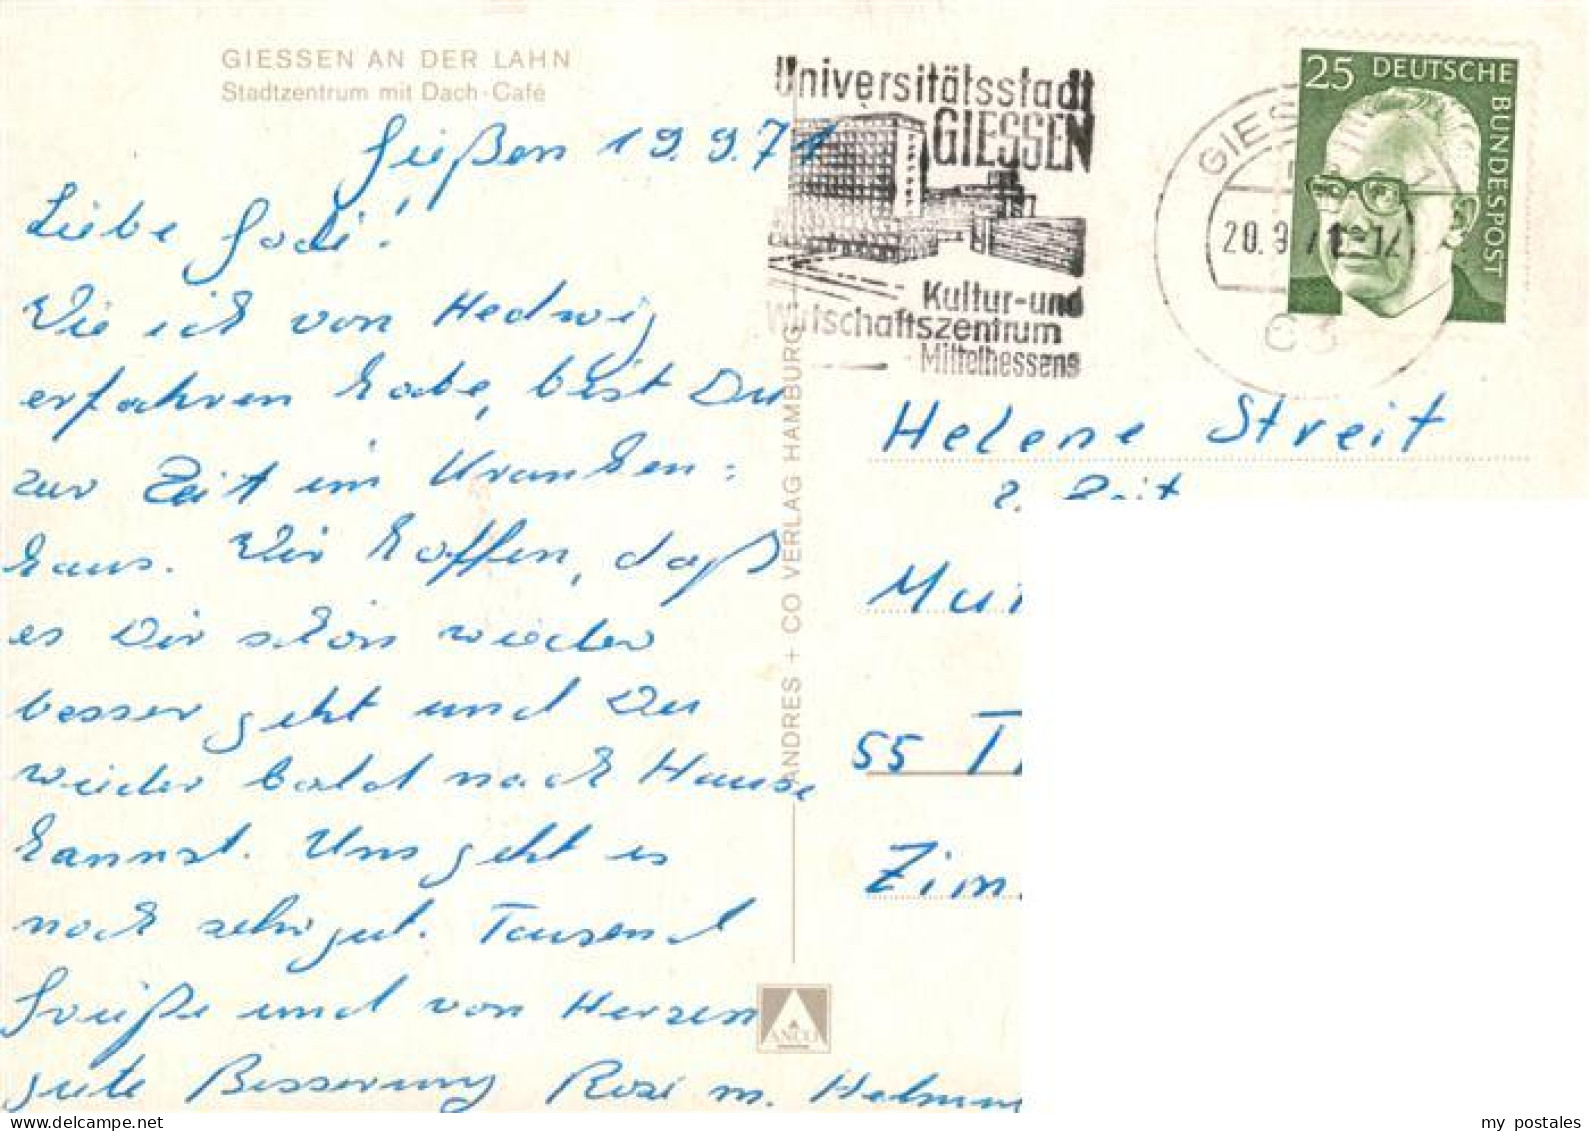 GIESSEN AN DER LAHN
Stadtzentrum mit Dach-Café
Gießen 19.9.71
Liebe Godi!
Wie ich von Hedwig
erfahren habe, bist Du
zur Zeit im Kranken-
haus. Wir hoffen, daß
es Dir schon wieder
besser geht und Du
wieder bald nach Hause
kannst. Uns geht es
noch sehr gut. Tausend
Grüße und von Herzen
gute Besserung Rosi m. Helmu
ANDRES + CO VERLAG HAMBURG
ANCO
Universitätsstadt
GIESSEN
Kultur-und
Wirtschaftszentrum
Mittelhessens
GIES 1
20. 9. 71 - 12
25 DEUTSCHE BUNDESPOST
Helene Streit
z. Zeit
55 T
Zim.
my postales